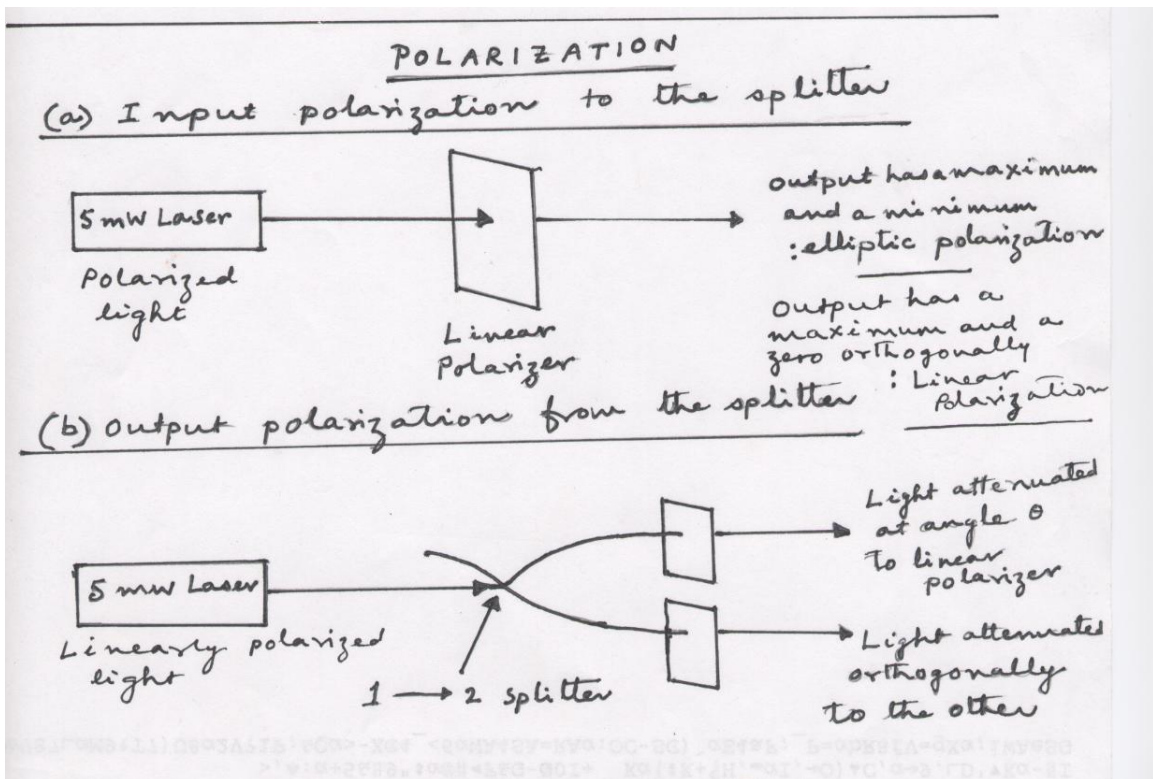 POLARIZATION
(a) Input polarization to the splitter
5 mW Laser
Polarized
light
Linear
Polarizer
output has a maximum
and a minimum
: elliptic polarization
Output has a
maximum and a
zero orthogonally
: Linear
Polarization
(b) Output polarization from the splitter
5 mW Laser
Linearly polarized
light
1 → 2 splitter
Light attenuated
at angle θ
to linear
polarizer
Light attenuated
orthogonally
to the other